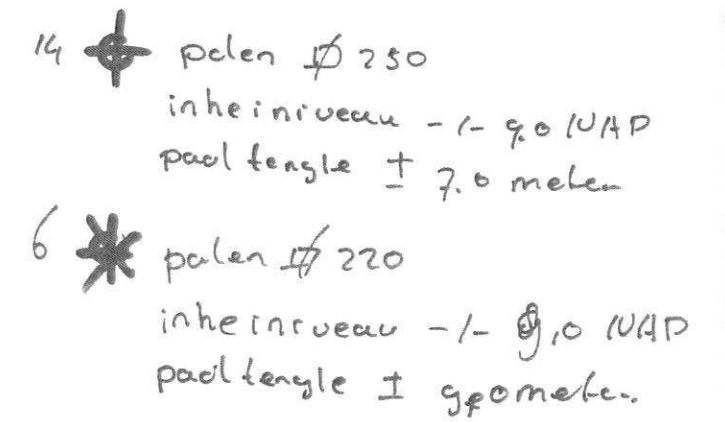 14 palen ⌀ 250
inheiniveau -/- 9.0 NAP
paallengte ± 7.0 meter
6 palen ⌀ 220
inheiniveau -/- 9,0 NAP
paallengte ± 9,0 meter.